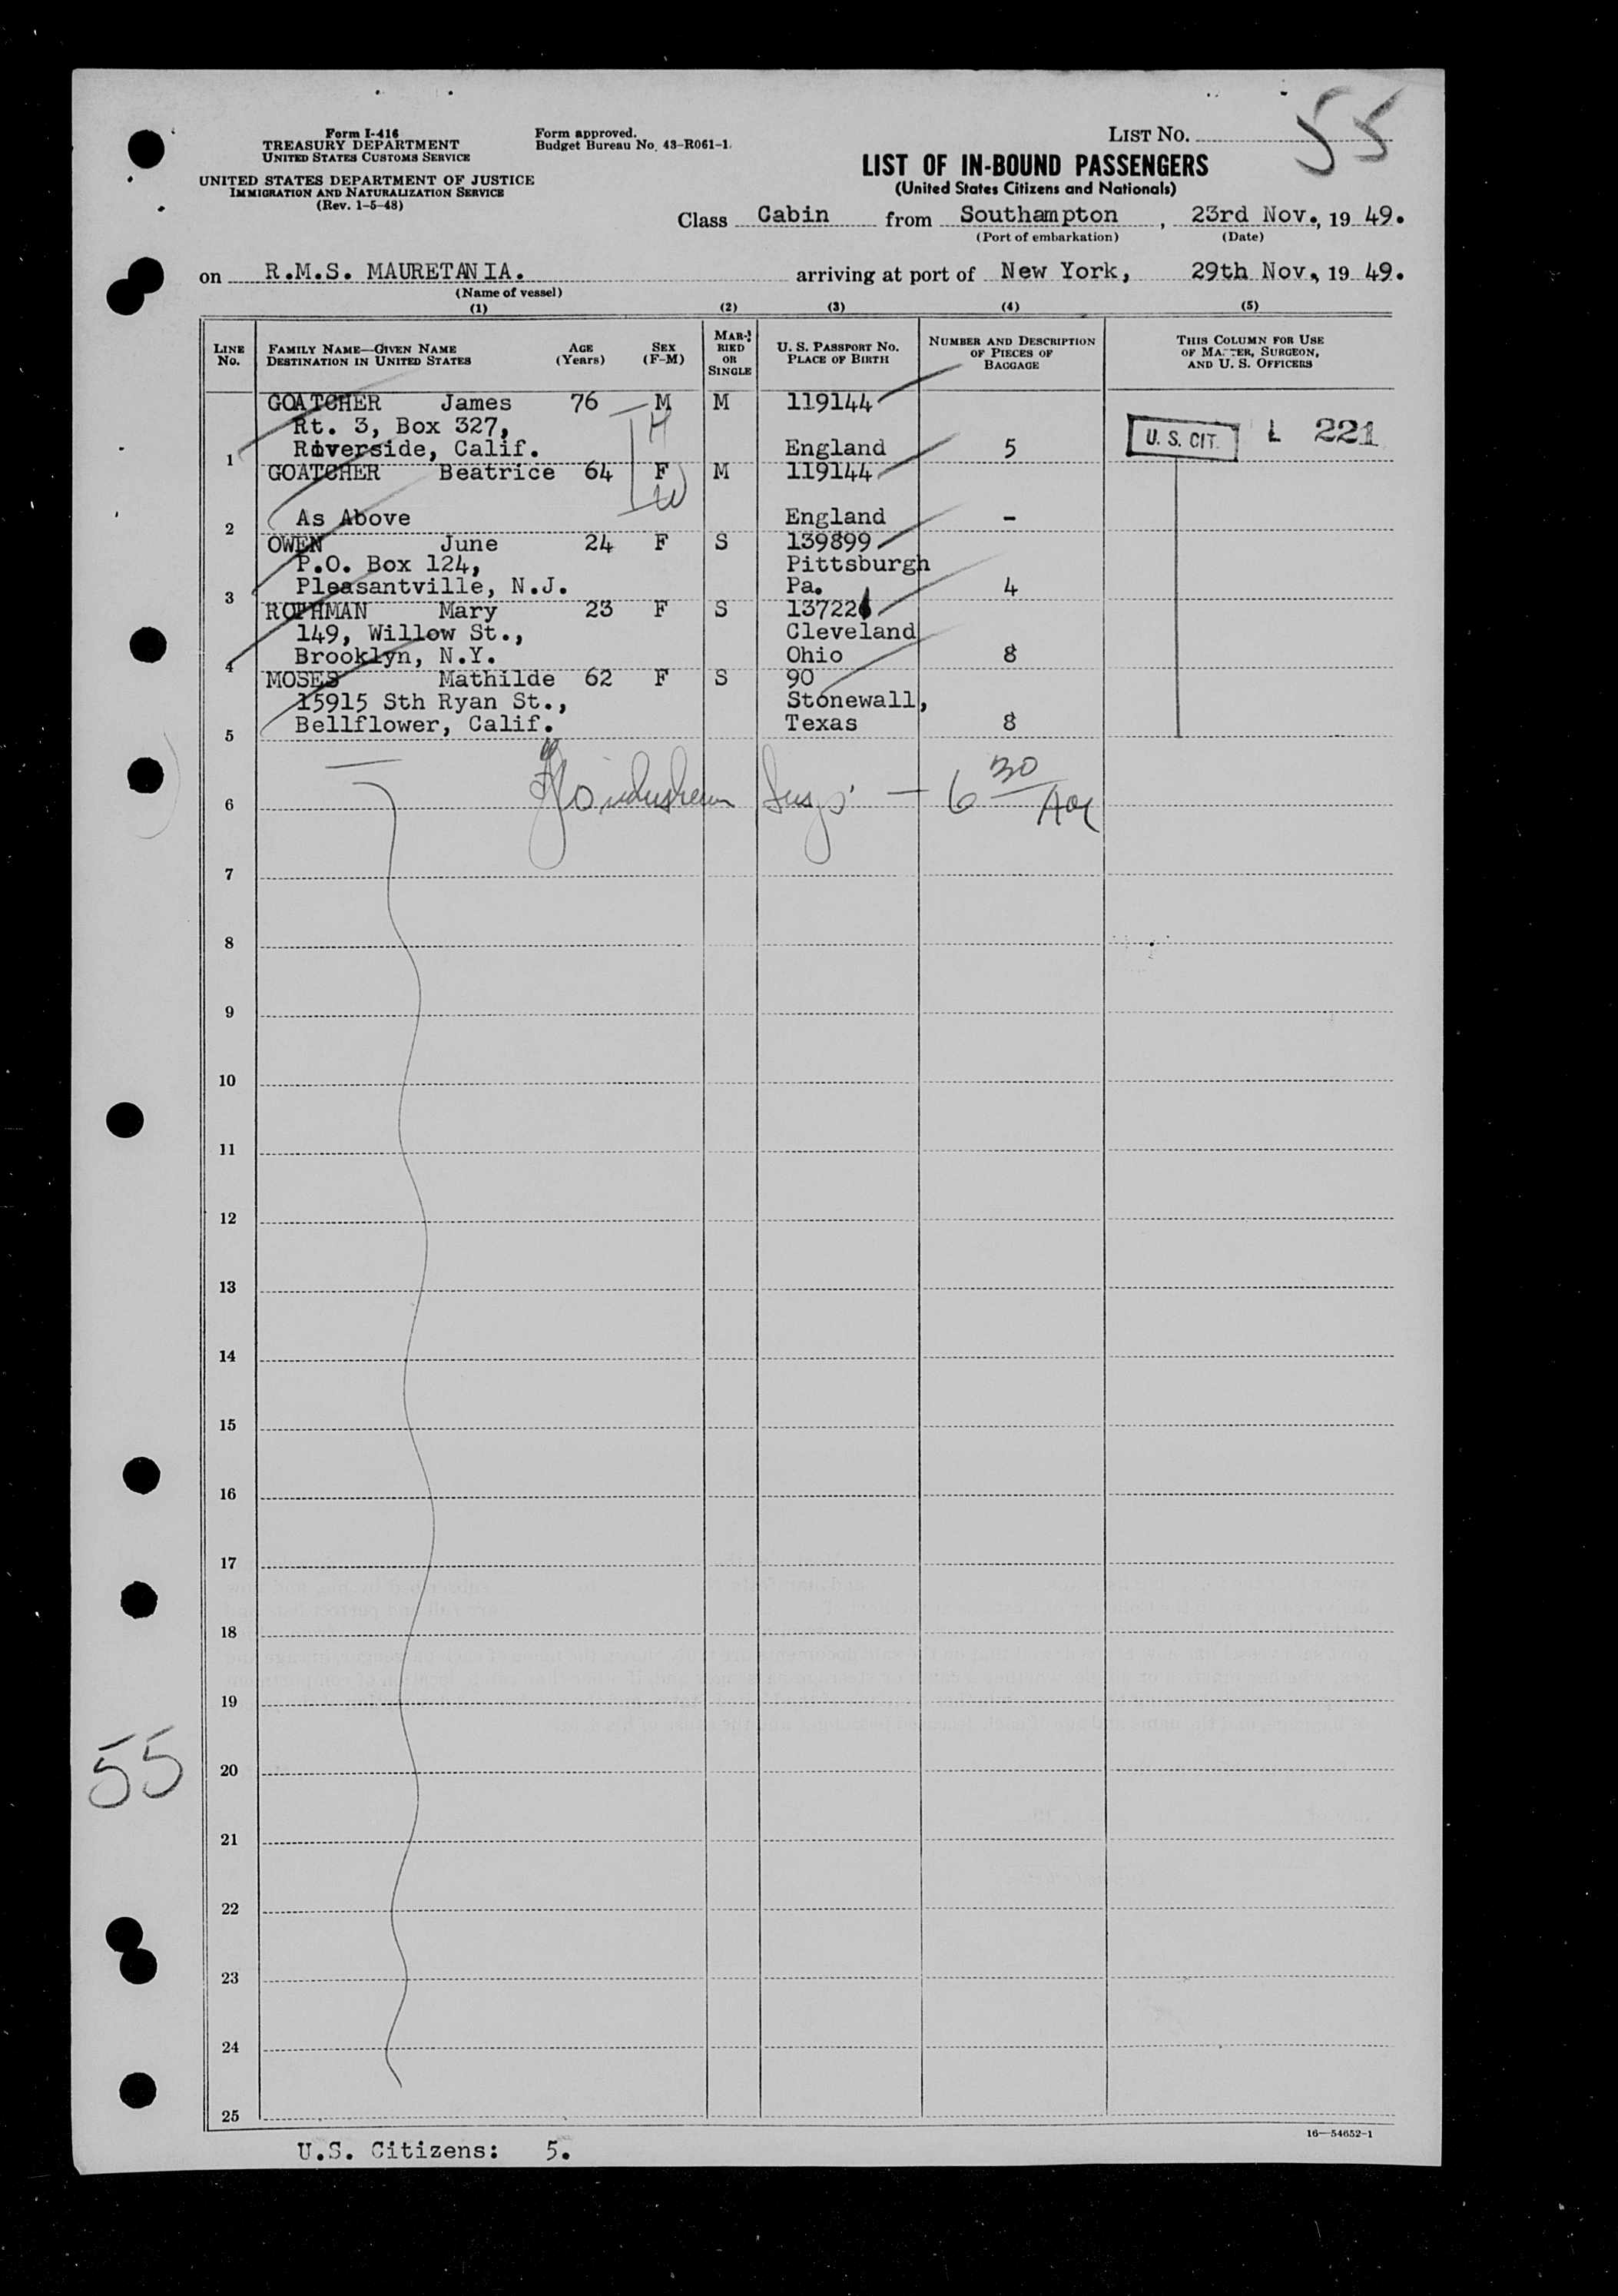 55
Form I-416
TREASURY DEPARTMENT
UNITED STATES CUSTOMS SERVICE
UNITED STATES DEPARTMENT OF JUSTICE
IMMIGRATION AND NATURALIZATION SERVICE
(Rev. 1-5-48)
Form approved.
Budget Bureau No. 43-R061-1.
LIST NO.
LIST OF IN-BOUND PASSENGERS
(United States Citizens and Nationals)
Class Cabin from Southampton, 23rd Nov., 19 49.
(Port of embarkation) (Date)
on R.M.S. MAURETANIA. arriving at port of New York, 29th Nov., 19 49.
(Name of vessel)
(1) (2) (3) (4) (5)
LINE No. FAMILY NAME—GIVEN NAME DESTINATION IN UNITED STATES AGE (Years) SEX (F-M) MARRIED OR SINGLE U. S. PASSPORT NO. PLACE OF BIRTH NUMBER AND DESCRIPTION OF PIECES OF BAGGAGE THIS COLUMN FOR USE OF MASTER, SURGEON, AND U. S. OFFICERS
GOATCHER James 76 M M 119144
Rt. 3, Box 327, H
1 Riverside, Calif. England 5 U. S. CIT. L 221
GOATCHER Beatrice 64 F M 119144
W
2 As Above England -
OWEN June 24 F S 139899
P.O. Box 124, Pittsburgh
3 Pleasantville, N.J. Pa. 4
ROTHMAN Mary 23 F S 13722
149, Willow St., Cleveland
4 Brooklyn, N.Y. Ohio 8
MOSES Mathilde 62 F S 90
15915 Sth Ryan St., Stonewall,
5 Bellflower, Calif. Texas 8
6 Insp - 6 30
7
8
9
10
11
12
13
14
15
16
17
18
19
55
20
21
22
23
24
25
16—54652-1
U.S. Citizens: 5.